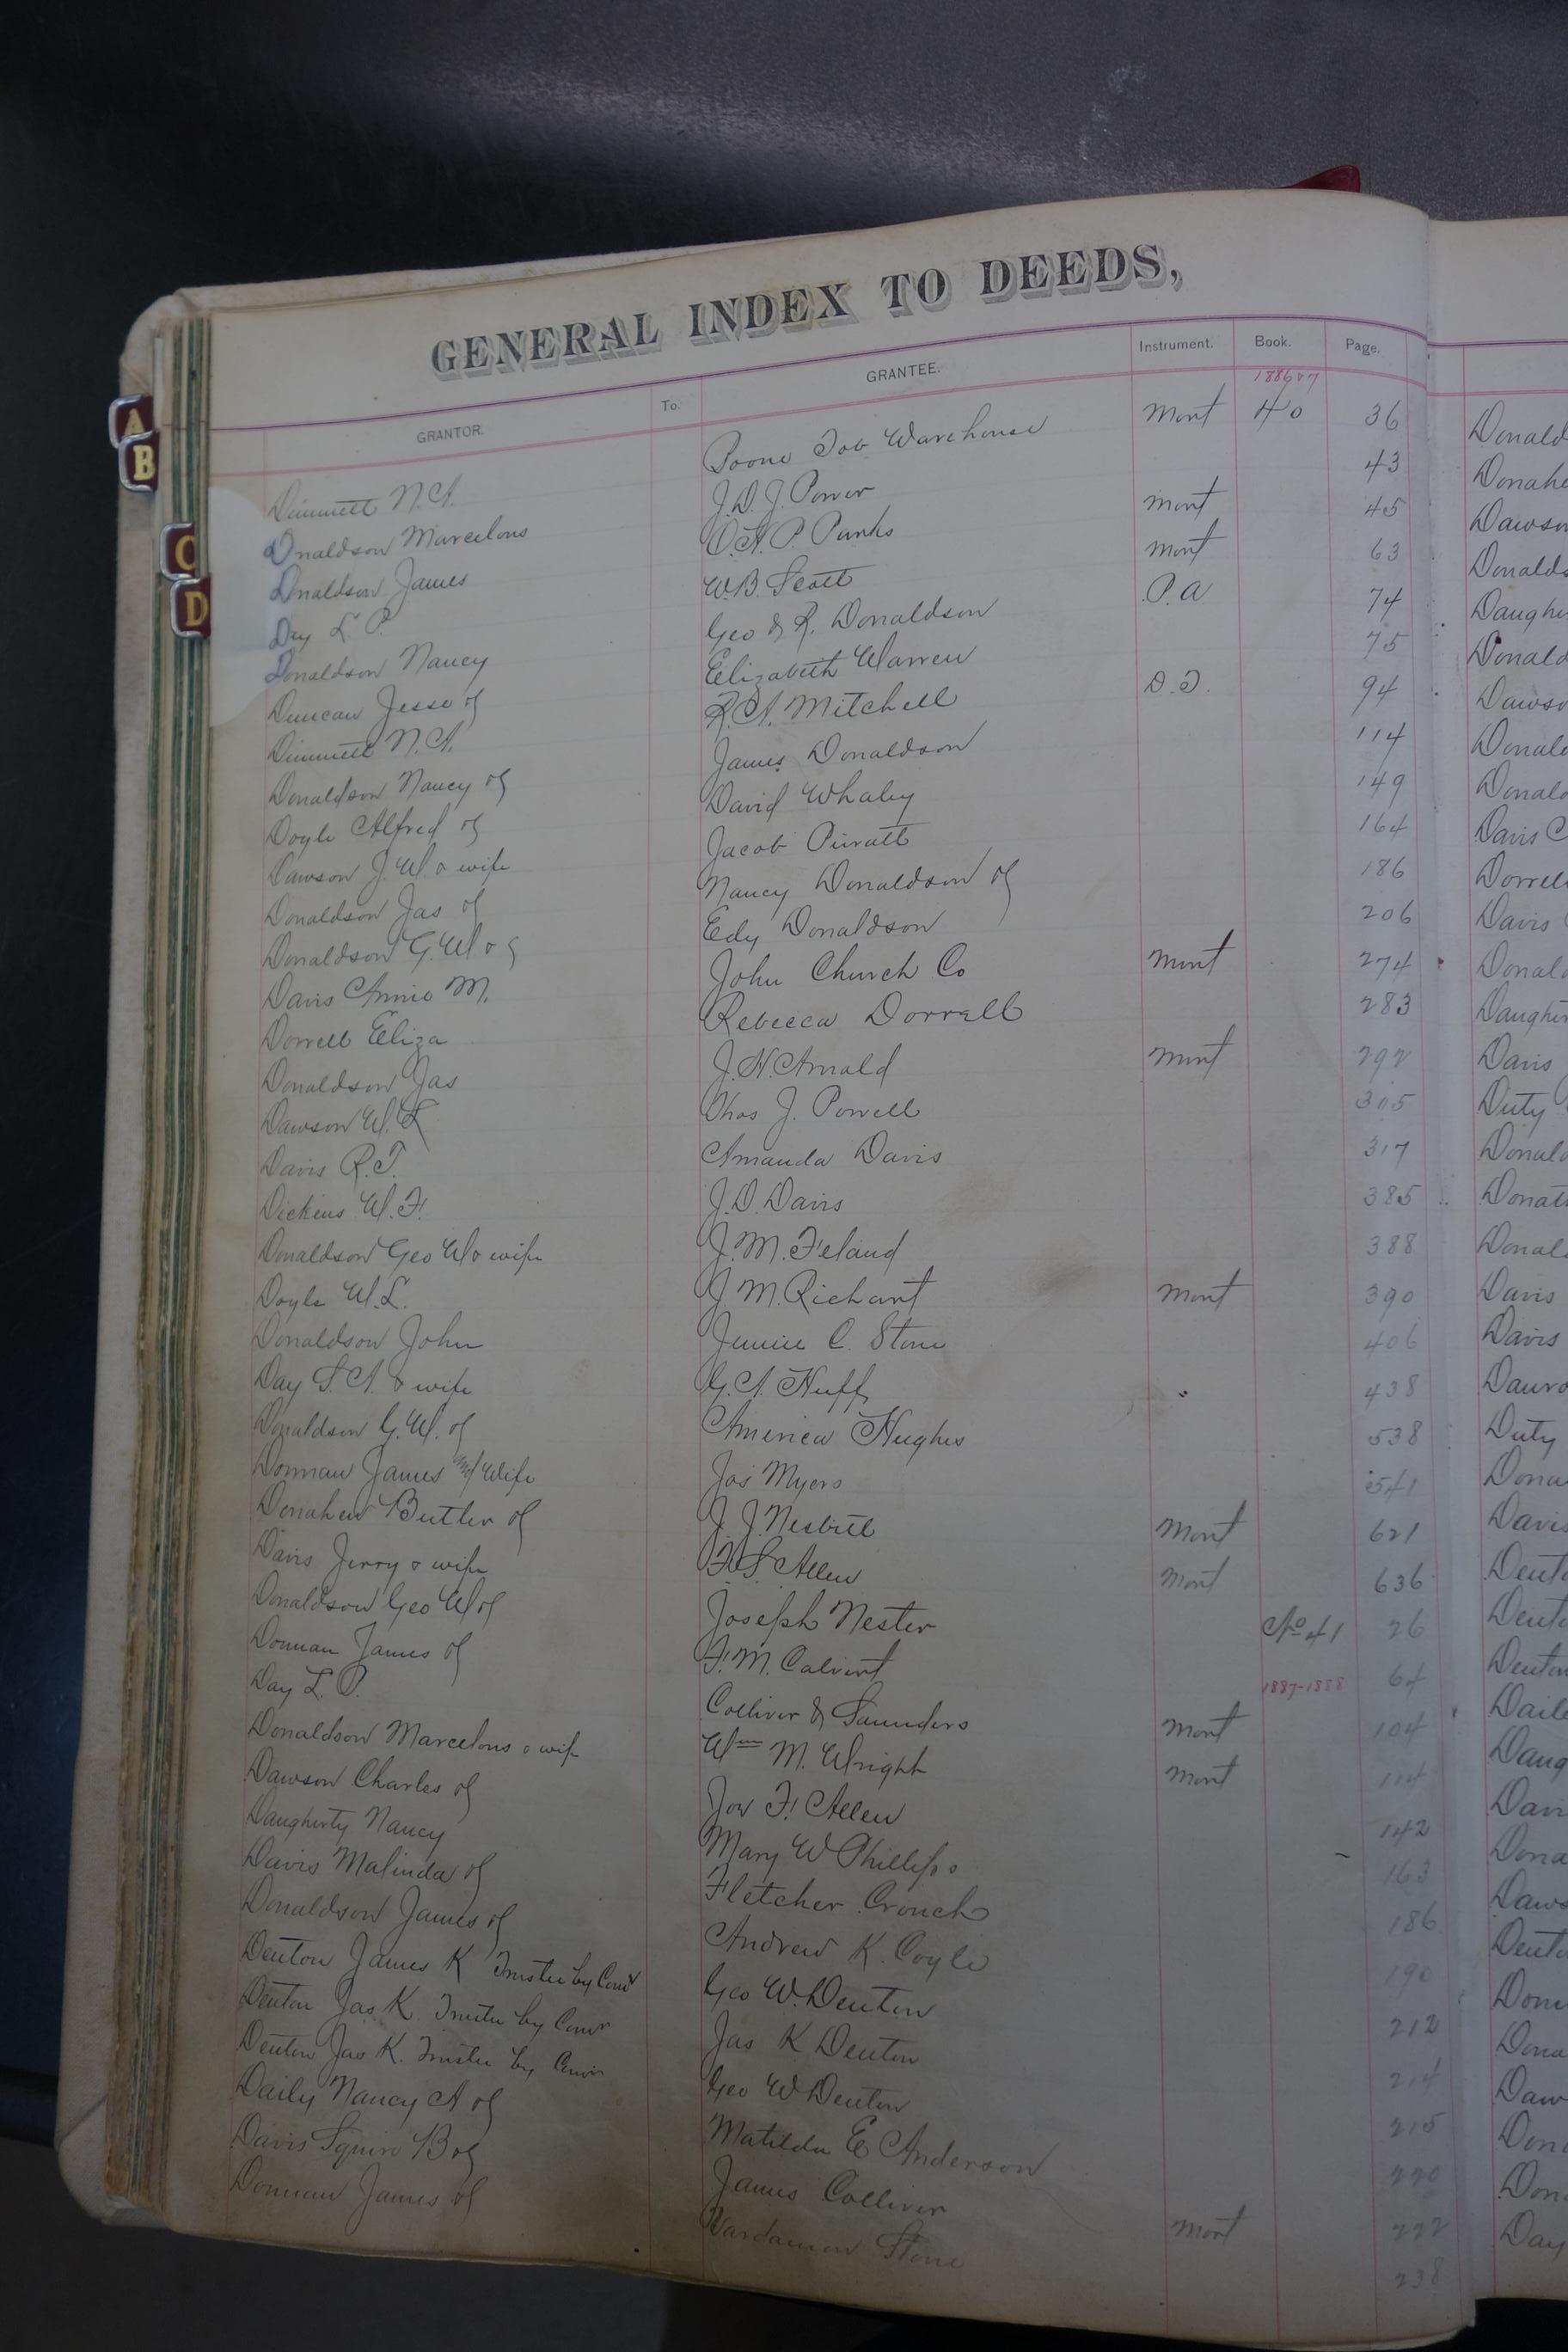 GENERAL INDEX TO DEEDS,
GRANTOR. To. GRANTEE. Instrument. Book. Page.
1886 & 7
Dimmitt N.A. Boone Tob Warehouse Mort 40 36
Donaldson Marcelous J.D.J. Power 43
Donaldson James O.H.P. Parks Mort 45
Day L. P. W.B. Scott Mort 63
Donaldson Nancy Geo & R. Donaldson P.A 74
Duncan Jesse of Elizabeth Warren 75
Dimmitt N.A. R.A. Mitchell D.T. 94
Donaldson Nancy of James Donaldson 114
Doyle Alfred of David Whaley 149
Dawson J.W. & wife Jacob 164
Donaldson Jas of Nancy Donaldson of 186
Donaldson G.W. & Edy Donaldson 206
Davis Annie M. John Church Co Mort 274
Dorrell Eliza Rebecca Dorrell 283
Donaldson Jas J.H. Arnald Mort 292
Dawson W.L Thos J. Powell 305
Davis R.T. Amanda Davis 317
Dickens W.F. J.D. Davis 385
Donaldson Geo W & wife J.M. Feland 388
Doyle W.L. J M. Richart Mort 390
Donaldson John Jennie C. Stone 406
Day S.A. & wife G.A. Huff " 438
Donaldson G.W. of America Hughes 538
Donnan James and Wife Jas Myers 541
Donahew Butler of J.J. Nesbitt Mort 621
Davis Jerry & wife F.S Allen Mort 636
Donaldson Geo W of Joseph Nester No 41 26
Donnan James of F.M. Calvert 1887-1888 64
Day L. P. Colliver & Saunders Mort 104
Donaldson Marcelous & wife Wm M. Wright Mort 114
Dawson Charles of F. Allen 142
Daugherty Nancy Mary W Phillips 163
Davis Malinda of Fletcher Crouch 186
Donaldson James of Andrew K. Coyle 190
Denton James K Trustee by Comr Geo W. Denton 212
Denton Jas K. Trustee by Comr Jas K Denton 214
Denton Jas K. Trustee by Comr Geo W Denton 215
Daily Nancy A of Matilda E Anderson 220
Davis Squire B of James Colliver Mort 222
Donnan James of Vardaman Stone 238
A
B
C
D